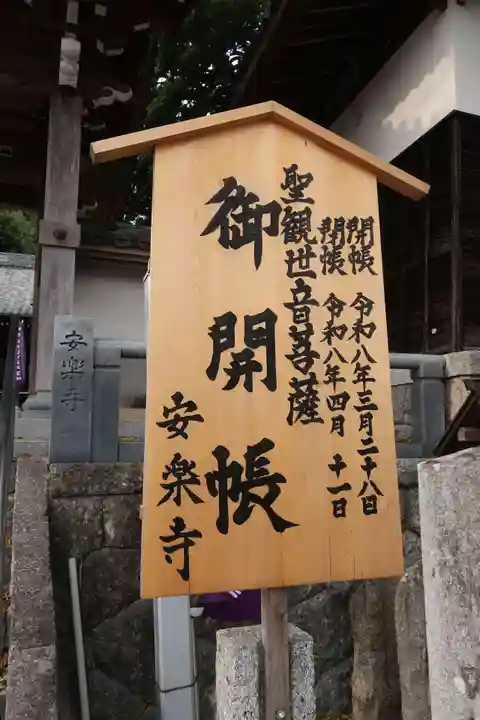 開帳 令和八年三月二十八日
閉帳 令和八年四月十一日
聖観世音菩薩
御開帳
安楽寺
安楽寺